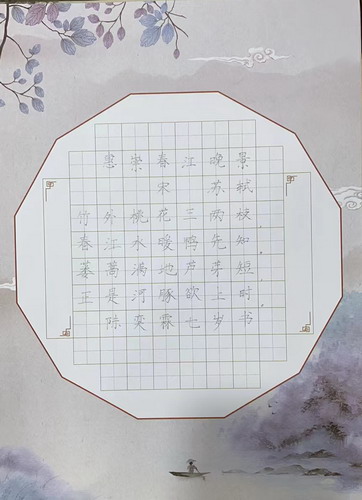 惠崇春江晚景
宋 苏轼
竹外桃花三两枝
春江水暖鸭先知
蒌蒿满地芦芽短
正是河豚欲上时
陈奕霖七岁书